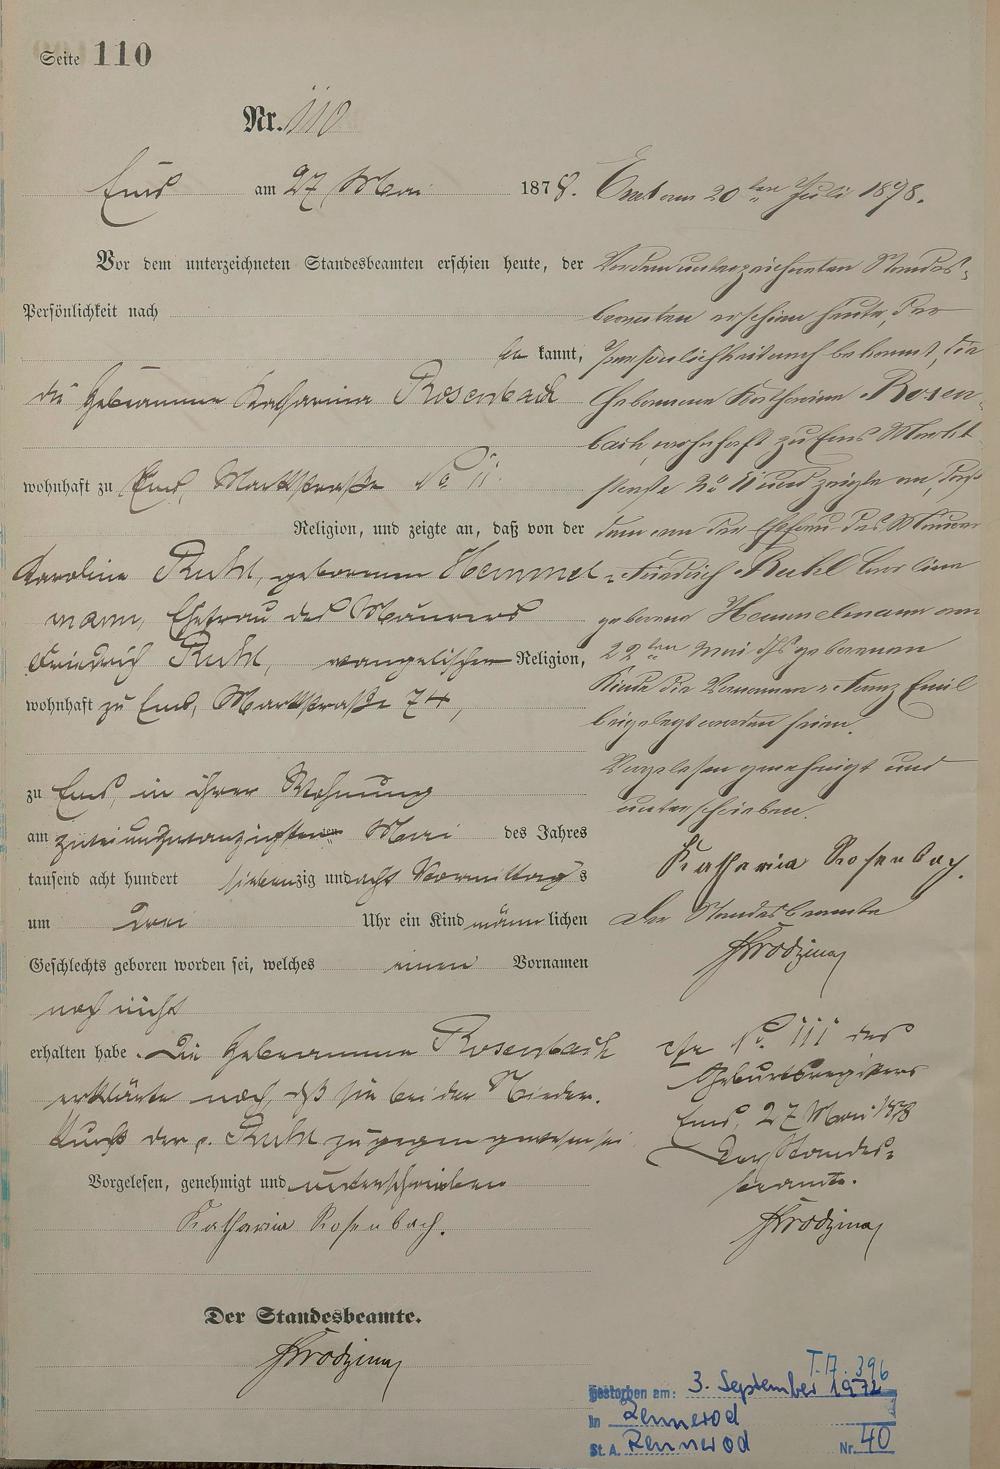 Seite 110
Nr. 110
Ems am 27 Mai 1878.
Vor dem unterzeichneten Standesbeamten erschien heute, der
Persönlichkeit nach
be kannt,
die Hebamme Katharina Rosenbach
wohnhaft zu Ems, Marktstraße No 11
Religion, und zeigte an, daß von der
Karoline Ruhl, geborenen Hemmel-
mann, Ehefrau des Maurers
Friedrich Ruhl, evangelischer Religion,
wohnhaft zu Ems, Marktstraße 74,
zu Ems, in ihrer Wohnung
am zweiundzwanzigsten Mai des Jahres
tausend acht hundert siebenzig und acht Vormittags
um drei Uhr ein Kind männlichen
Geschlechts geboren worden sei, welches einen Vornamen
noch nicht
erhalten habe. Die Hebamme Rosenbach
erklärte noch, daß sie bei der Nieder-
kunft der p. Ruhl zugegen gewesen sei
Vorgelesen, genehmigt und unterschrieben
Katharina Rosenbach.
Der Standesbeamte.
am 20ten Juli 1878.
Vor dem unterzeichneten Standes-
beamten erschien heute, der
Persönlichkeit nach bekannt, die
Hebamme Katharina Rosen-
bach, wohnhaft zu Ems Markt-
straße No 11 und zeigte an, daß
dem von der Ehefrau des Maurer
Friedrich Ruhl Caroline
geborene Hemmelmann am
22ten Mai geborenen
Kinde die Vornamen Franz Emil
beigelegt worden seien.
Vorgelesen genehmigt und
unterschrieben.
Katharina Rosenbach.
Der Standesbeamte
No. 111 des
Geburtsregisters
Ems, 27 Mai 1878
Der Standes-
beamte.
396
gestorben am: 3. September 1972
in Rennerod
St. A. Rennerod Nr. 40